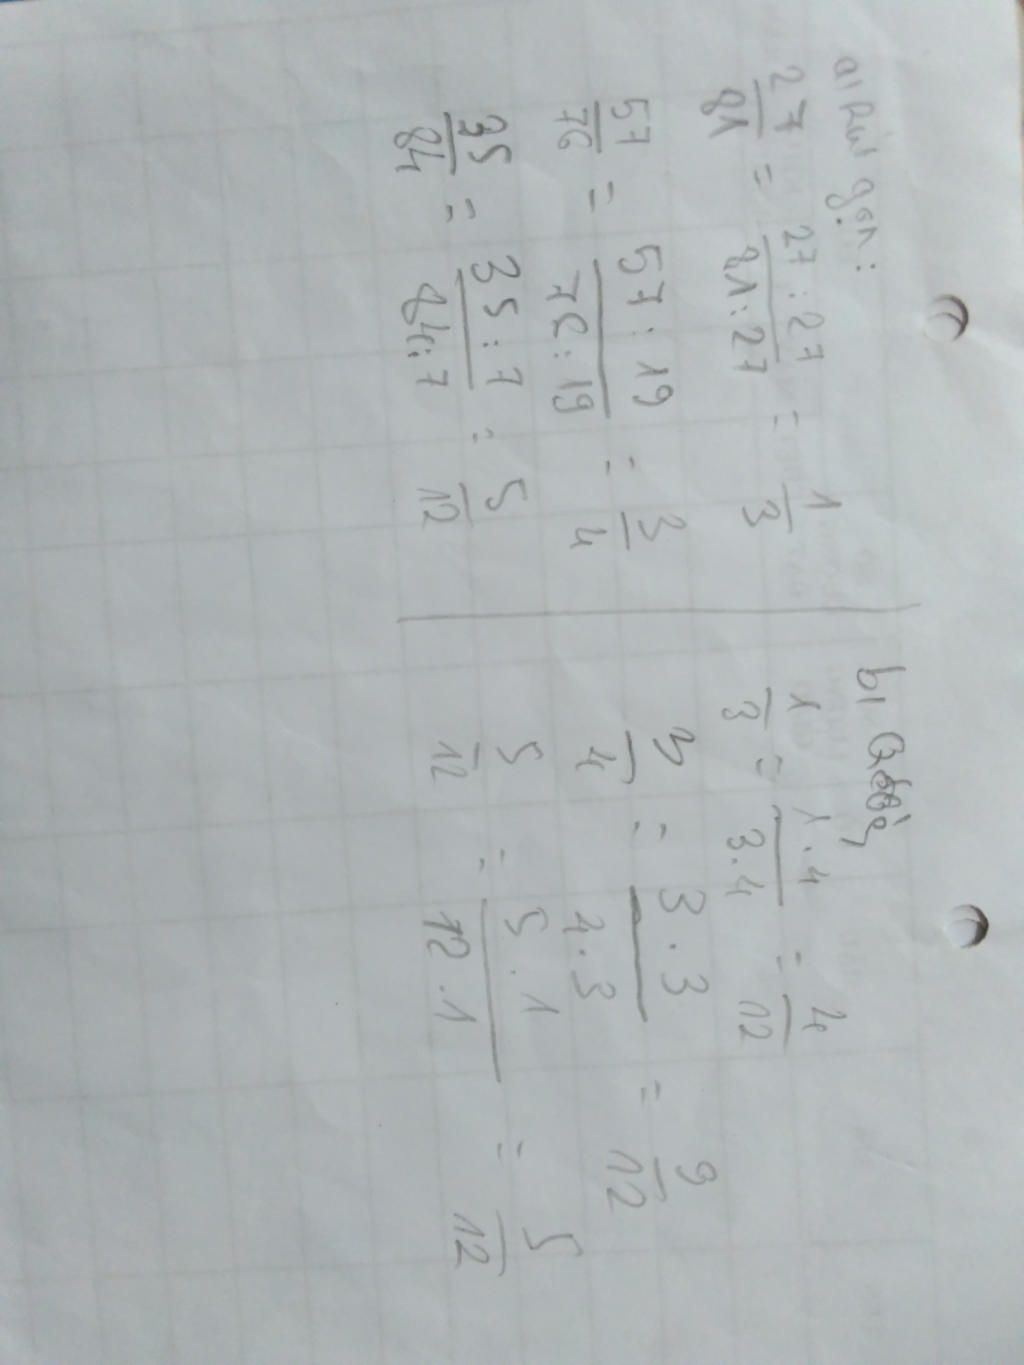 a) Rút gọn:
27/81 = 27:27/81:27 = 1/3
57/76 = 57:19/76:19 = 3/4
35/84 = 35:7/84:7 = 5/12
b)
1/3 = 1.4/3.4 = 4/12
3/4 = 3.3/4.3 = 9/12
5/12 = 5.1/12.1 = 5/12